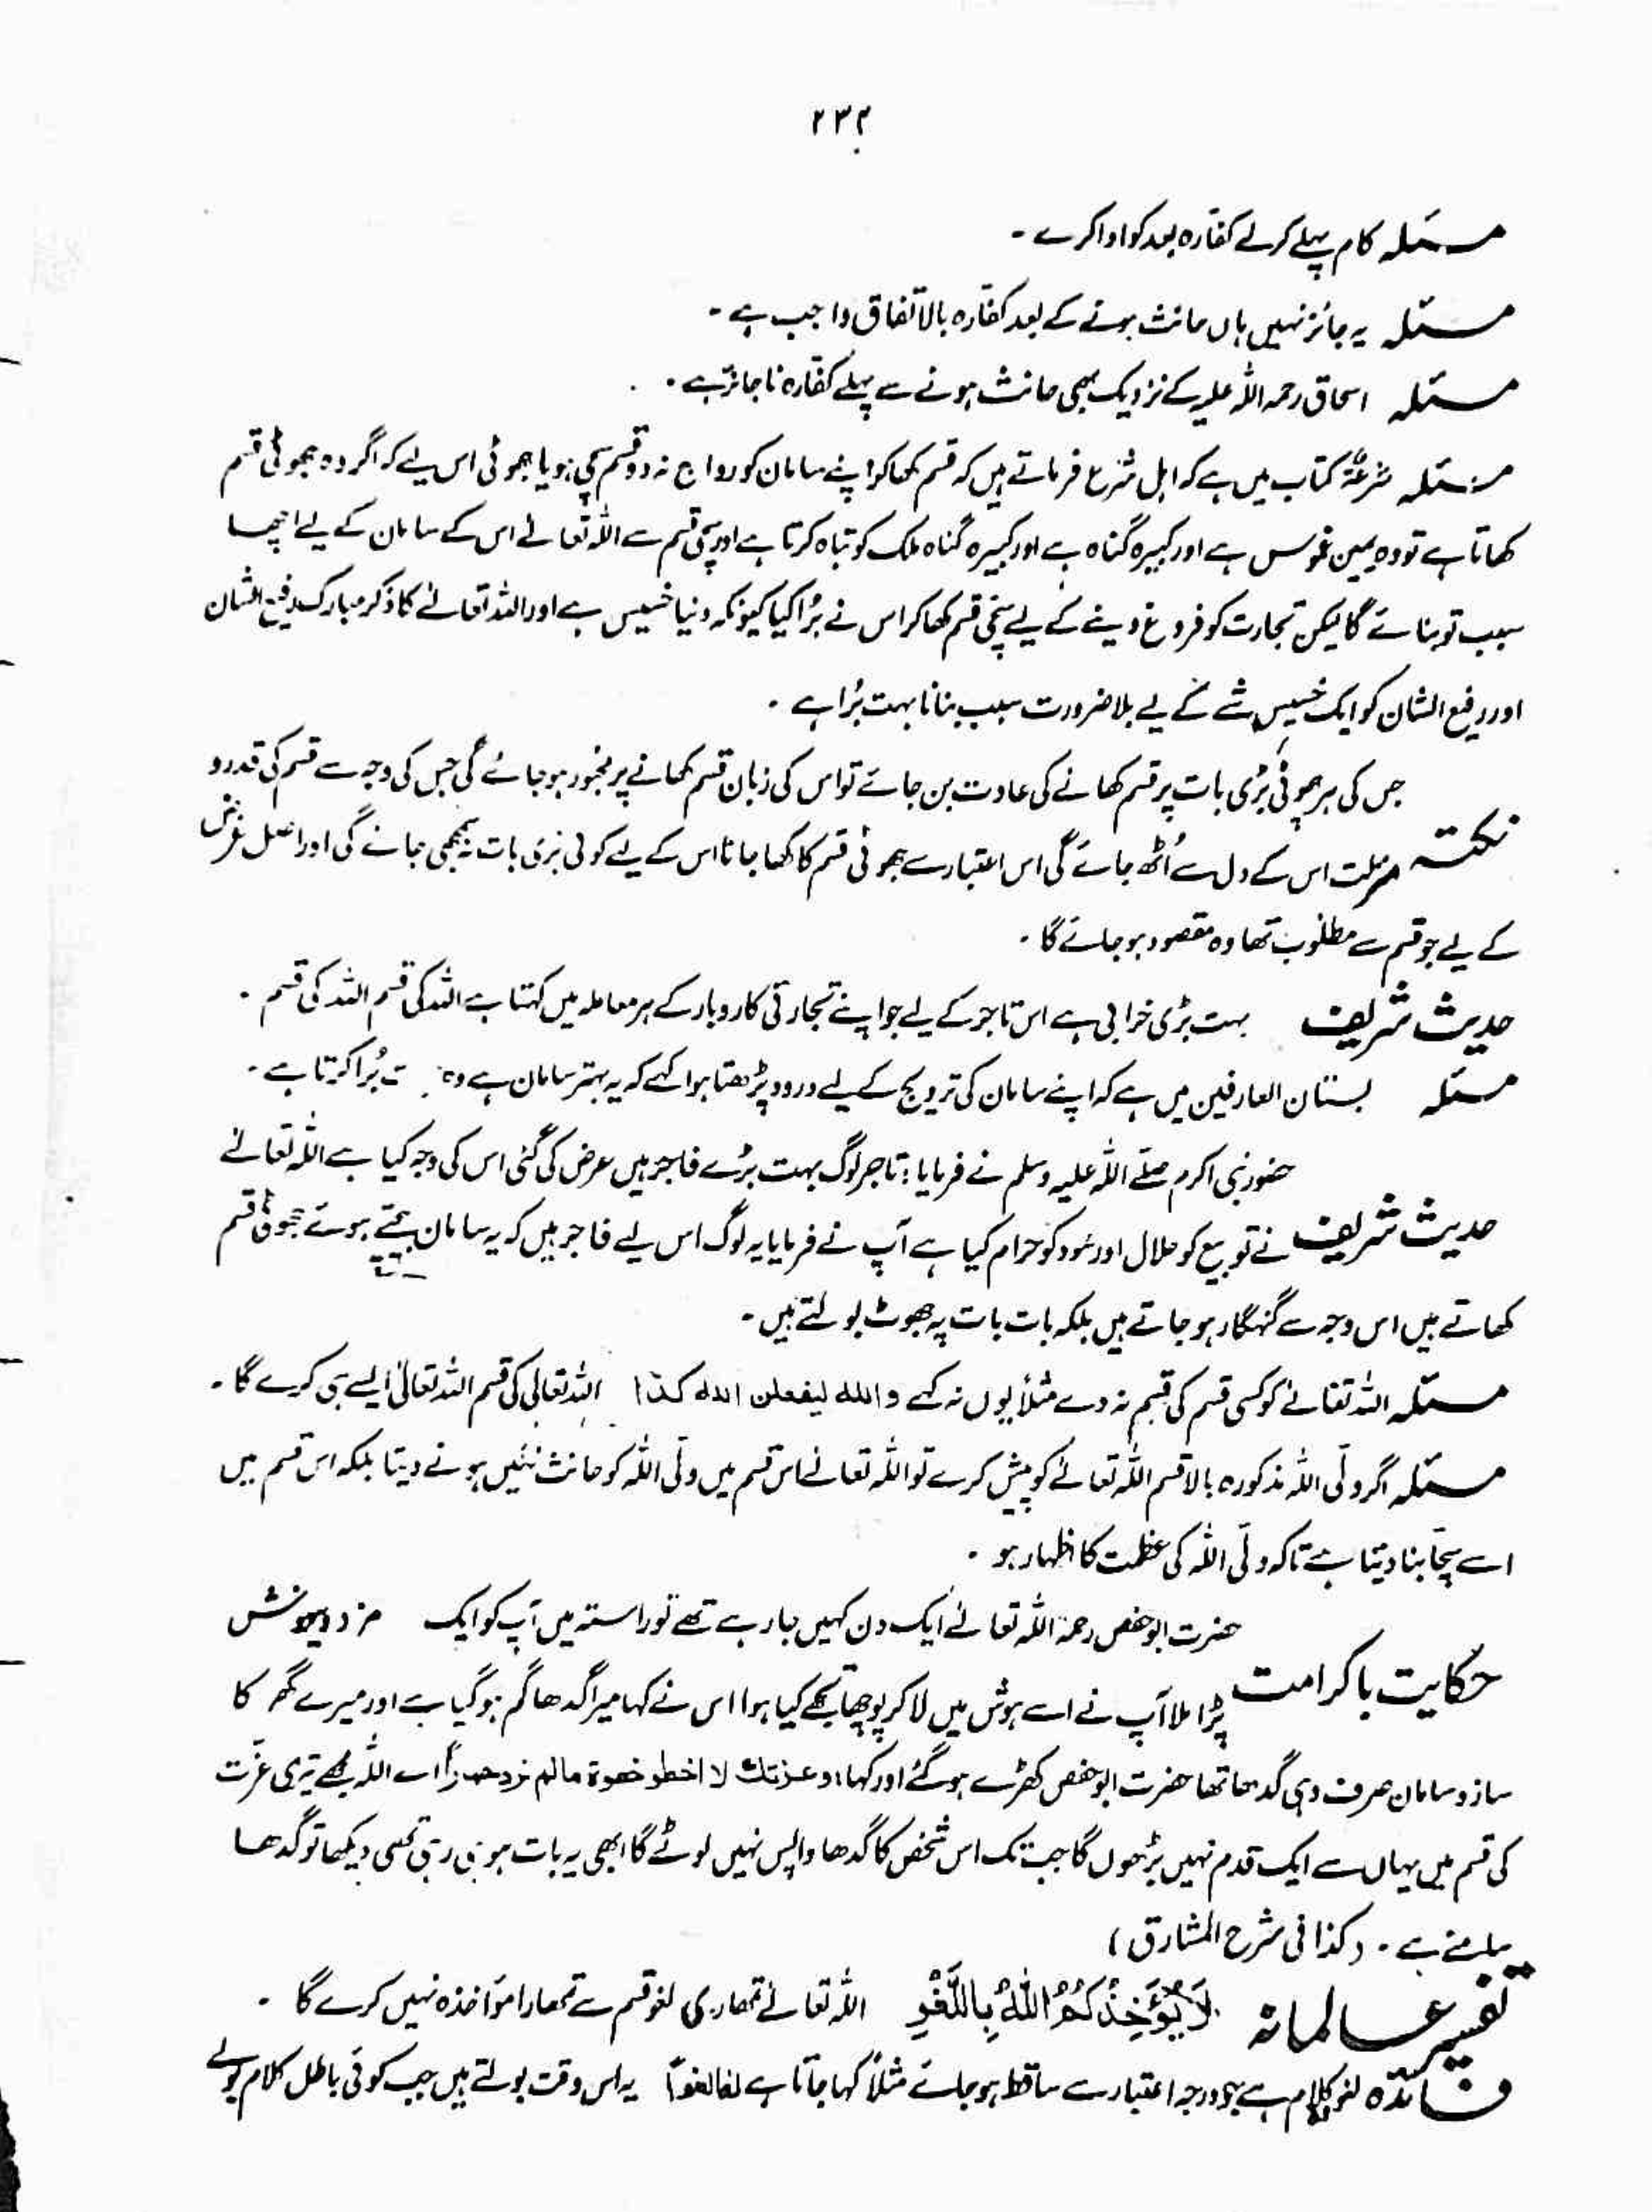 ۲۳۲
مسئلہ کام پہلے کرلے کفارہ بعد کو ادا کرے ۔
مسئلہ یہ جائز نہیں ہاں حانث ہونے کے بعد کفّارہ بالاتفاق واجب ہے ۔
مسئلہ اسحاق رحمہ اللہ علیہ کے نزدیک بھی حانث ہونے سے پہلے کفّارہ ناجائز ہے ۔
مسئلہ شرعۃ کتاب میں ہے کہ اہل شرع فرماتے ہیں کہ قسم کھا کر اپنے سامان کو رواج نہ دو قسم سچی ہو یا جھوٹی اس لیے کہ اگر وہ جھوٹی قسم
کھاتا ہے تو وہ یمین غموس ہے اور کبیرہ گناہ ہے اور کبیرہ گناہ ملک کو تباہ کرتا ہے اور سچی قسم سے اللہ تعالےٰ اس کے سامان کے لیے اچھا
سبب تو بنائے گا لیکن تجارت کو فروغ دینے کے لیے سچی قسم کھا کر اس نے بُرا کیا کیونکہ دنیا خسیس ہے اور اللہ تعالےٰ کا ذکر مبارک رفیع الشان
اور رفیع الشان کو ایک خسیس شے کے لیے بلا ضرورت سبب بنانا بہت بُرا ہے ۔
جس کی ہر چھوٹی بڑی بات پر قسم کھانے کی عادت بن جائے تو اس کی زبان قسم کھانے پر مجبور ہو جائے گی جس کی وجہ سے قسم کی قدر و
نکتہ منزلت اس کے دل سے اُٹھ جائے گی اس اعتبار سے جھوٹی قسم کا کھا جانا اس کے لیے کوئی بڑی بات نہ سمجھی جائے گی اور اصل غرض
کے لیے جو قسم سے مطلوب تھا وہ مقصود ہو جائے گا ۔
حدیث شریف بہت بڑی خرابی ہے اس تاجر کے لیے جو اپنے تجارتی کاروبار کے ہر معاملہ میں کہتا ہے اللہ کی قسم اللہ کی قسم ۔
مسئلہ بستان العارفین میں ہے کہ اپنے سامان کی ترویج کے لیے درود پڑھتا ہوا کہے کہ یہ بہتر سامان ہے وہ بُرا کرتا ہے ۔
حضور نبی اکرم صلے اللہ علیہ وسلم نے فرمایا : تاجر لوگ بہت بڑے فاجر ہیں عرض کی گئی اس کی وجہ کیا ہے اللہ تعالےٰ
حدیث شریف نے تو بیع کو حلال اور سُود کو حرام کیا ہے آپ نے فرمایا یہ لوگ اس لیے فاجر ہیں کہ یہ سامان بیچتے ہوئے جھوٹی قسم
کھاتے ہیں اس وجہ سے گنہگار ہو جاتے ہیں بلکہ بات بات پہ جھوٹ بولتے ہیں ۔
مسئلہ اللہ تعالےٰ کو کسی قسم کی قسم نہ دے مثلاً یوں نہ کہے واللہ لیفعلن اللہ کذا اللہ تعالیٰ کی قسم اللہ تعالیٰ ایسے ہی کرے گا ۔
مسئلہ اگر ولی اللہ مذکورہ بالا قسم اللہ تعالےٰ کو پیش کرے تو اللہ تعالےٰ اس قسم میں ولی اللہ کو حانث نہیں ہونے دیتا بلکہ اس قسم میں
اسے سچا بنا دیتا ہے تاکہ ولی اللہ کی عظمت کا اظہار ہو ۔
حضرت ابو حفص رحمۃ اللہ تعالےٰ ایک دن کہیں جا رہے تھے تو راستہ میں آپ کو ایک
حکایت باکرامت پڑا ملا آپ نے اسے ہوش میں لا کر پوچھا تجھے کیا ہوا اس نے کہا میرا گدھا گم ہو گیا ہے اور میرے گھر کا
ساز و سامان صرف وہی گدھا تھا حضرت ابو حفص کھڑے ہو گئے اور کہا، وعزتك لا اخطو خطوة مالم اے اللہ مجھے تیری عزّت
کی قسم میں یہاں سے ایک قدم نہیں بڑھوں گا جب تک اس شخص کا گدھا واپس نہیں لوٹے گا ابھی یہ بات ہو ہی رہی تھی دیکھا تو گدھا
سامنے ہے ۔ (کذا فی شرح المشارق)
تفسیر عالمانہ لَا يُؤَاخِذُكُمُ اللّٰهُ بِاللَّغْوِ اللہ تعالےٰ تمھاری لغو قسم سے تمھارا مواخذہ نہیں کرے گا ۔
فائدہ لغو کلام ہے جو درجہ اعتبار سے ساقط ہو جائے مثلاً کہا جاتا ہے لغا لغوًا یہ اس وقت بولتے ہیں جب کوئی باطل کلام بولے